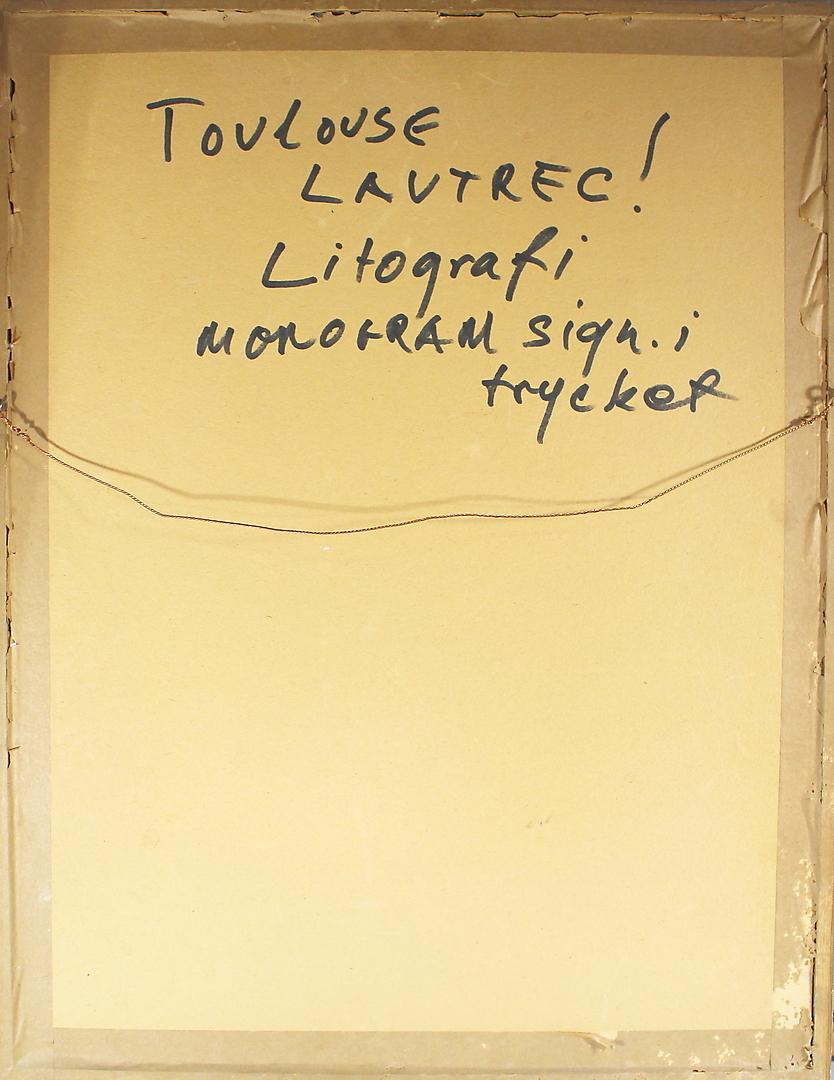 Toulouse
LAUTREC!
Litografi
MONOGRAM sign. i
trycket